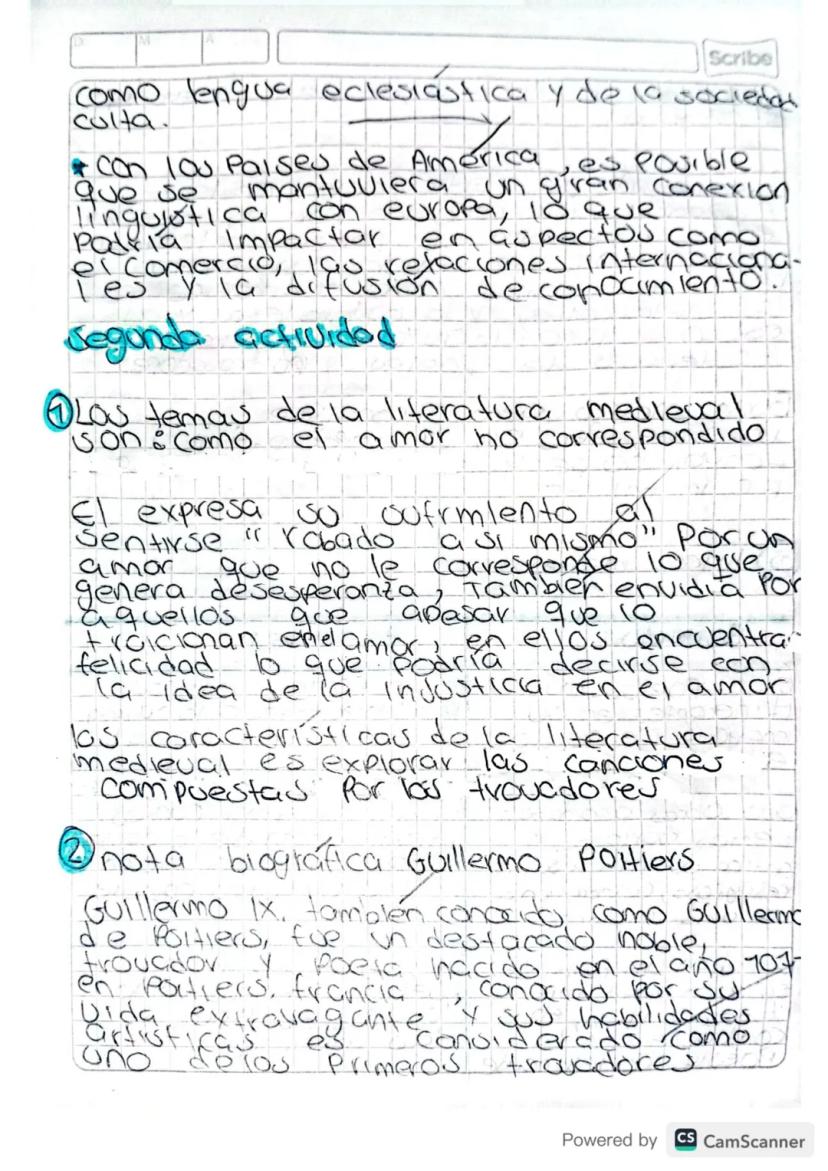 D M A
Scribe
como lengua eclesiástica y de la sociedad
culta.
* con los Paises de América, es posible
que se mantuviera un gran conexion
linguistica con europa, lo que
podría impactar en aspectos como
el comercio, las relaciones internaciona-
les y la difusión de conocimiento.
segunda actividad
1 Los temas de la literatura medieval
son: como el amor no correspondido
El expresa su sufrmiento al
sentirse "robado a si mismo" por un
amor que no le corresponde lo que
genera desesperanza, También envidia por
aquellos que apesar que lo
traicionan en el amor, en ellos encuentra
felicidad lo que podría decirse con
la idea de la injusticia en el amor
las características de la literatura
medieval es explorar las canciones
compuestas por los trovadores
2 nota biográfica Guillermo Poitiers
Guillermo IX. también conocido como Guillermo
de Poitiers, fue un destacado noble,
trovador y poeta nacido en el año 107
en Poitiers. francia, conocido por su
vida extravagante y sus habilidades
artisticas es considerado como
uno de los Primeros trovadores
Powered by CS CamScanner